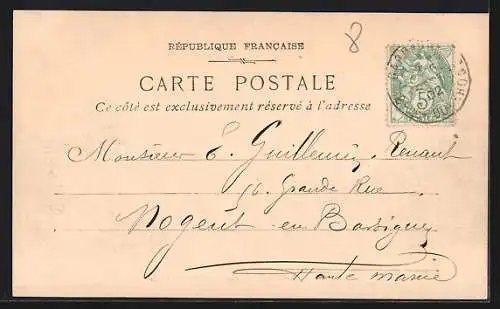 8
RÉPUBLIQUE FRANÇAISE
CARTE POSTALE
Ce côté est exclusivement réservé à l'adresse
5
02
Monsieur E. Guillemin Renaut
16. Grande Rue
Nogent en Bassigny
Haute Marne